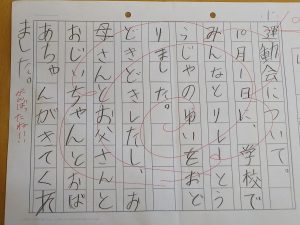 運動会について。
10月1日に、学校で
みんなと
じゃの
をおど
りました。
どきどきしたし、お
母さんとお父さんと
おじいちゃんとおば
あちゃんがきてくれ
ました。
がんばったね!!